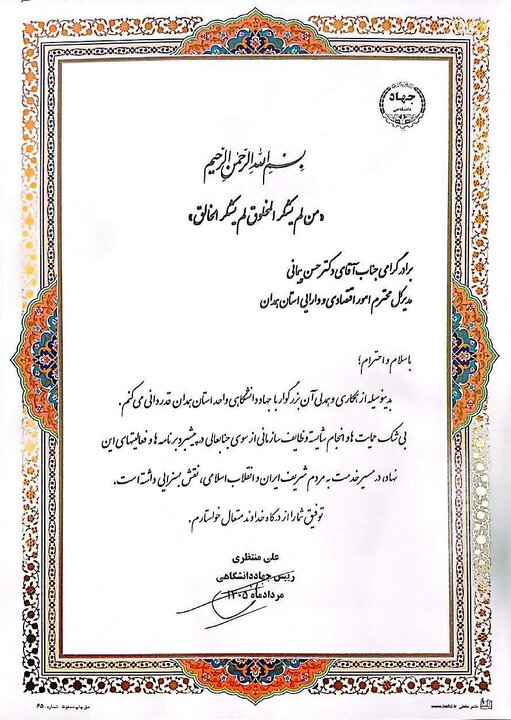 جهاد
دانشگاهی
بسم الله الرحمن الرحیم
«من لم یشکر المخلوق لم یشکر الخالق»
برادر گرامی جناب آقای دکتر حسن پیمانی
مدیرکل محترم امور اقتصادی و دارایی استان همدان
با سلام و احترام؛
بدینوسیله از همکاری و همدلی آن بزرگوار با جهاد دانشگاهی واحد استان همدان قدردانی می‌کنم.
بی‌شک حمایت‌ها و انجام شایسته وظایف سازمانی از سوی جنابعالی در پیشبرد برنامه‌ها و فعالیتهای این
نهاد، در مسیر خدمت به مردم شریف ایران و انقلاب اسلامی، نقش بسزایی داشته است.
توفیق شما را از درگاه خداوند متعال خواستارم.
علی منتظری
رییس جهاددانشگاهی
مردادماه ۱۴۰۵
حق چاپ محفوظ شماره: ۶۵
www.hefzi.ir